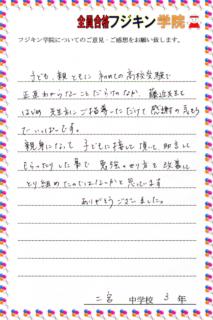 全員合格フジキン学院
フジキン学院についてのご意見・ご感想をお願い致します。
子ども、親ともに初めての高校受験で
正直わからないことだらけのなか、藤近先生を
はじめ先生方にご指導いただけて感謝の気もち
でいっぱいです。
親身になって子どもに接して頂いて助言して
もらったりした事で勉強のやり方も改善して
とり組めたのではないかと思います
ありがとうございました。
二宮 中学校 3 年